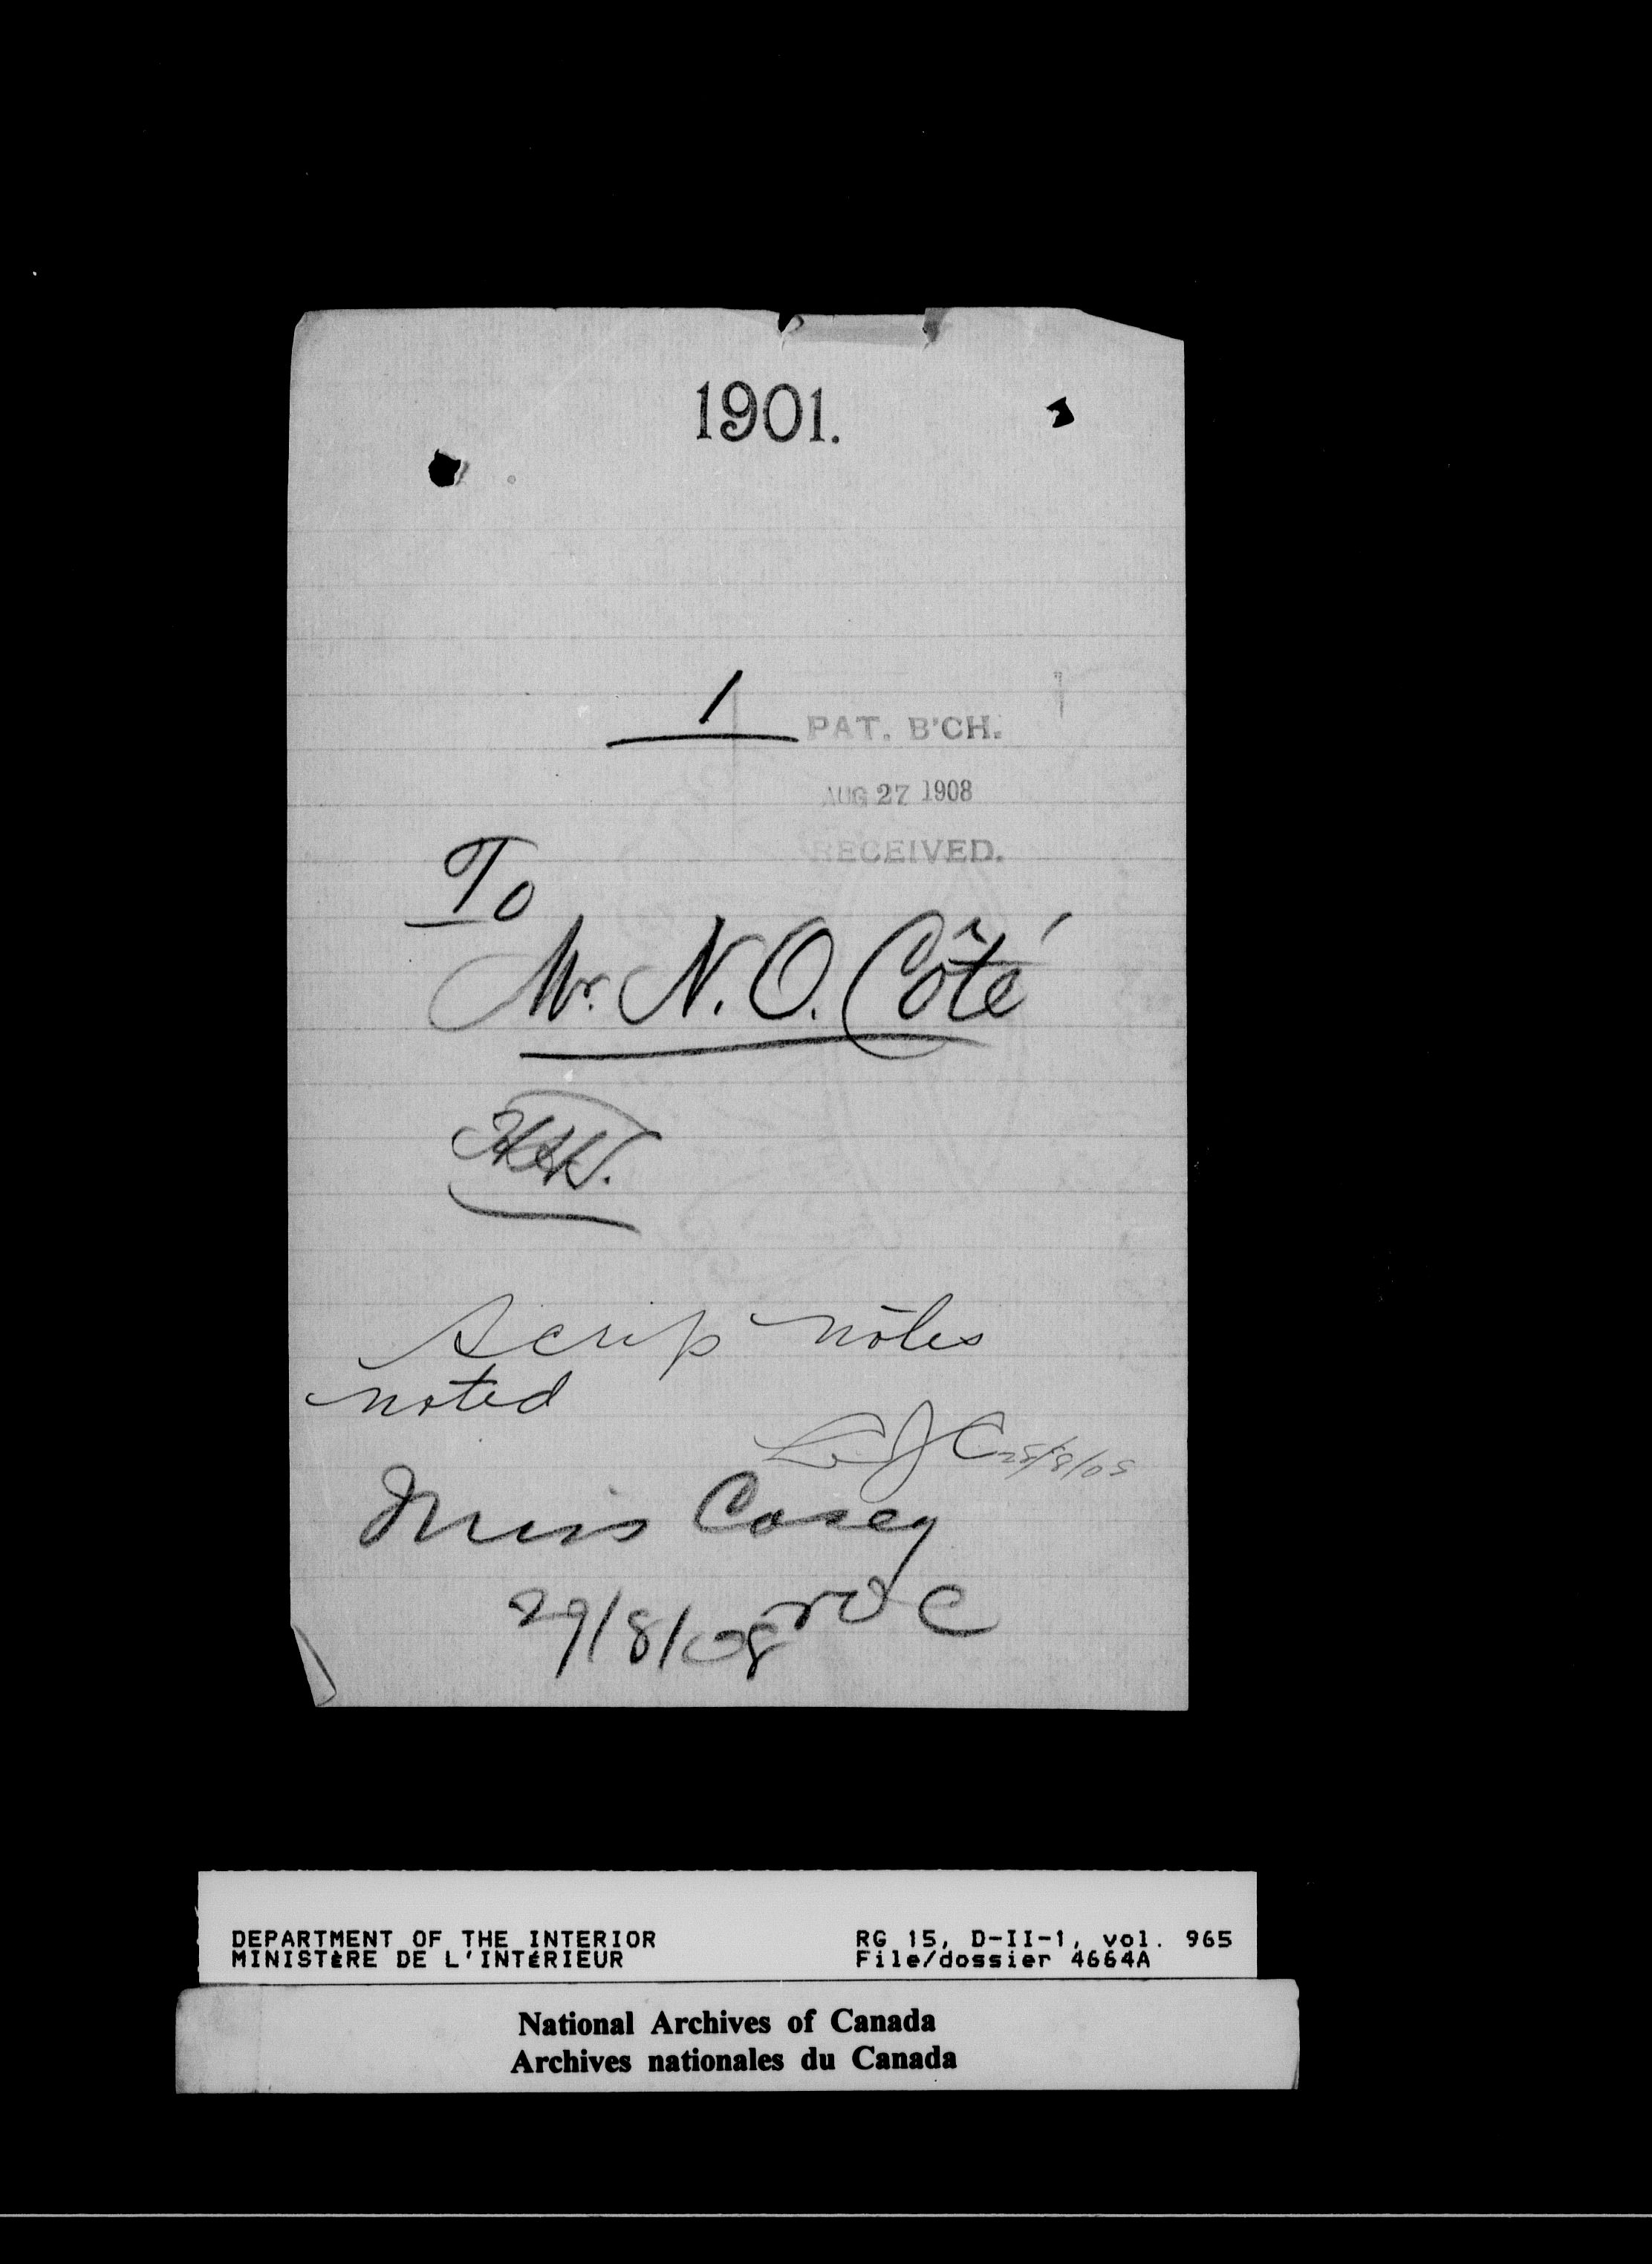 1901.
1
PAT. B'CH.
AUG 27 1908
RECEIVED.
To
Mr. N. O. Côté
Scrip notes
noted
28/8/08
Miss Casey
29/8/08 NOC
DEPARTMENT OF THE INTERIOR
MINISTÈRE DE L'INTÉRIEUR
RG 15, D-II-1, vol. 965
File/dossier 4664A
National Archives of Canada
Archives nationales du Canada